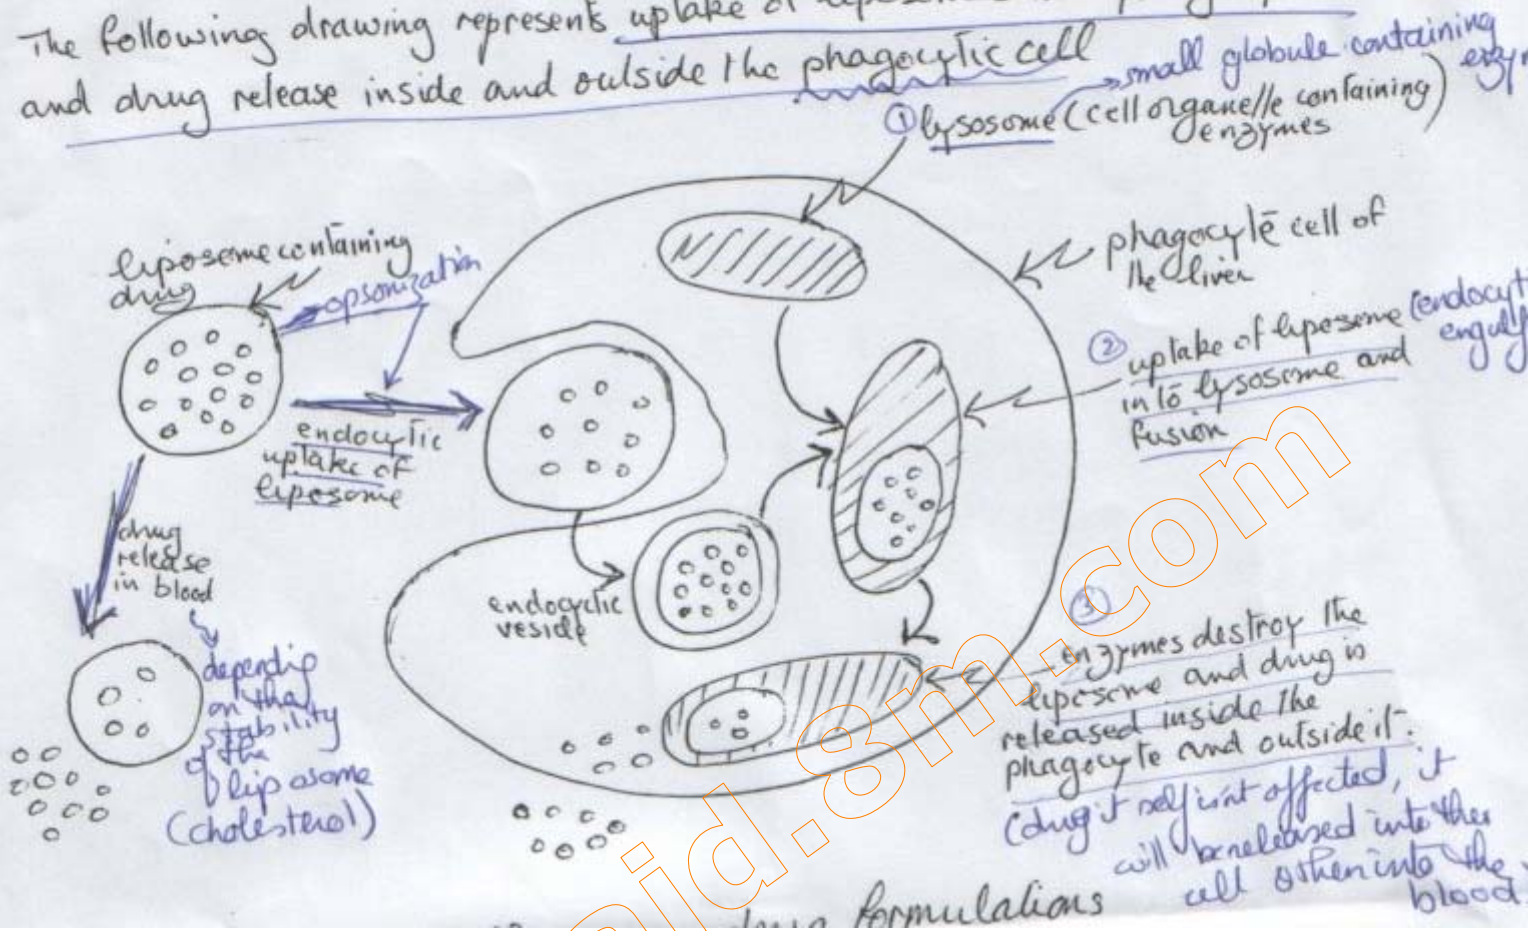 The following drawing represents uptake of
and drug release inside and outside the phagocytic cell
small globule containing
① lysosome (cell organelle containing)
enzymes
liposome containing
drug
opsonization
phagocyte cell of
the liver
② uptake of liposome (endocyt
into lysosome and engulf
fusion
endocytic
uptake of
liposome
drug
release
in blood
endocyctic
vesicle
depending
on the
stability
of the
liposome
(cholesterol)
③
enzymes destroy the
liposome and drug is
released inside the
phagocyte and outside it.
(drug it self isnt affected, it
will be released into the
cell then into the
blood
drug formulations
aid.8m.com